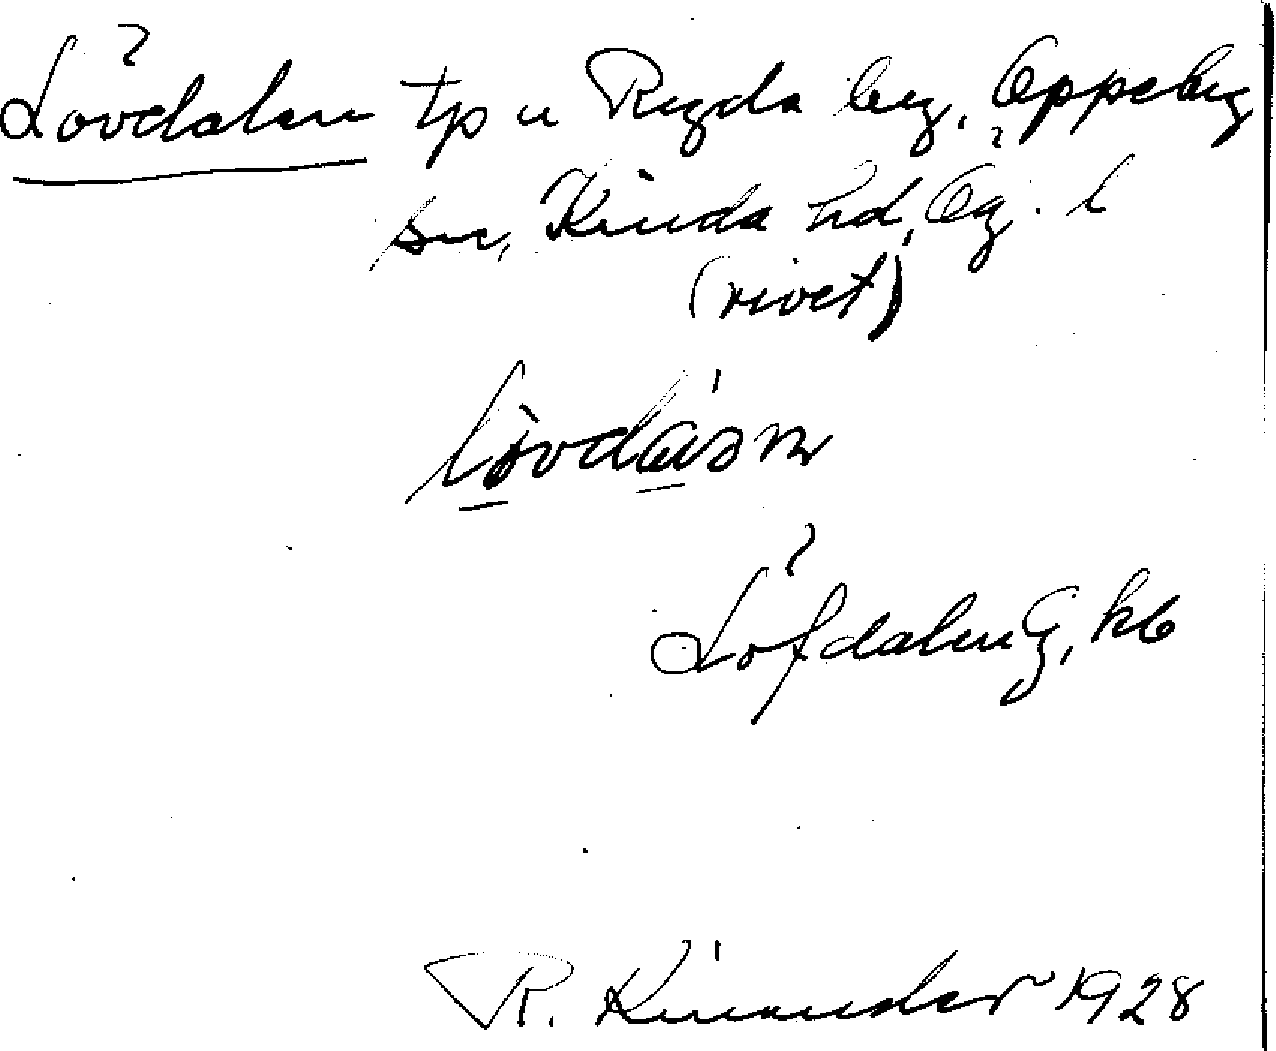 Lövdalen tp u Rydа by, Oppeby
sn, Kinda hd, Ög. l
(rivet)
Löfdalen G, kb
R. Kinander 1928